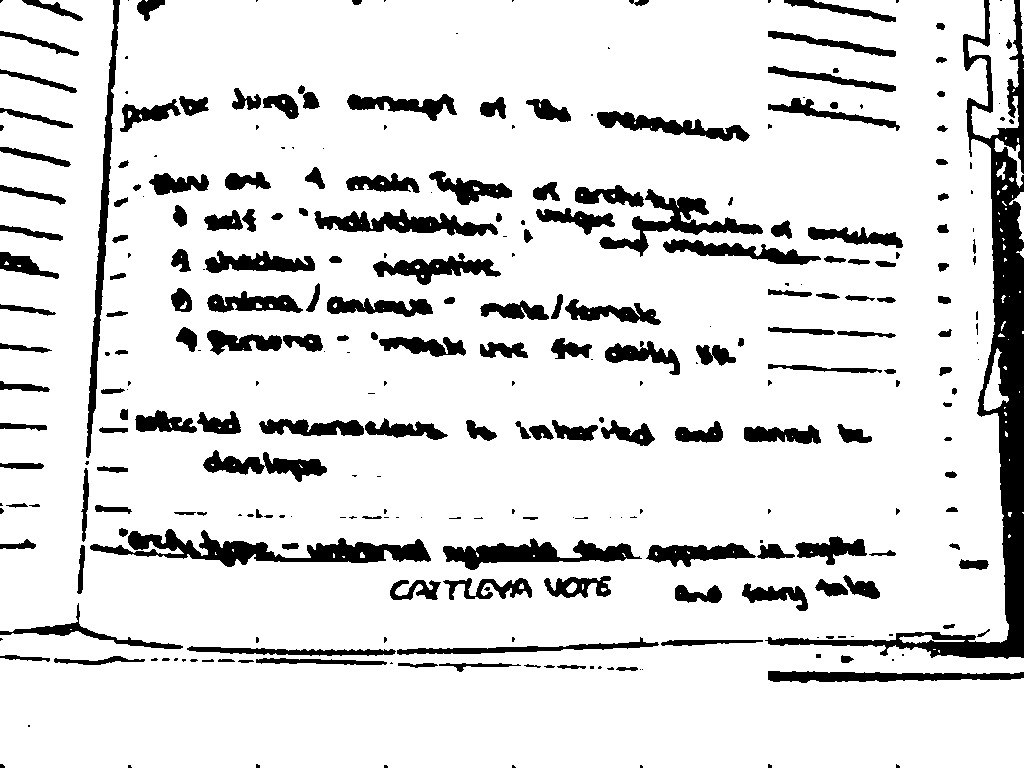 Describe Jung's concept of the unconscious
- There are 4 main Types of archi type
1) self - 'individuation' ; unique combination of conscious
and unconscious
2) shadow - negative
3) anima / animus - male / female
4) Persona - 'mask use for daily life'
collected unconscious is inherited and cannot be
develope
archy type - universal symbols that appears in myths
and fairy tales
CATTLEYA VOTE